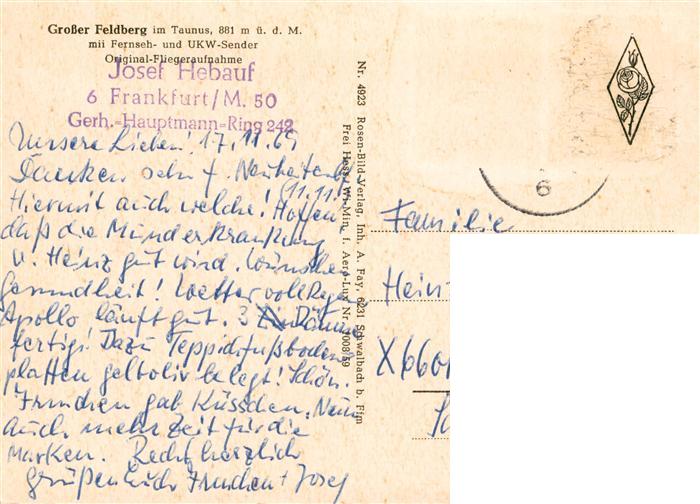 Großer Feldberg im Taunus, 881 m ü. d. M.
mit Fernseh- und UKW-Sender
Original-Fliegeraufnahme
Josef Hebauf
6 Frankfurt/M. 50
Gerh.=Hauptmann=Ring 242
Unsere Lieben! 17.11.69
Danken sehr f. Neuheiten
(11.11.
Hiermit auch welche! Hoffen
daß die Münder
v. Heinz gut wird. Wünschen
Gesundheit! Wetter voll Regen
Apollo läuft gut. 3
fertig! Dazu Teppichfußboden
platten gelboliv belegt! Schön.
Frauchen gab Küsschen. Nun
auch mehr Zeit für die
Marken. Recht herzlich
grüßen Euch Frauchen + Josef
Nr. 4923 Rosen-Bild-Verlag, Inh. A. Fay, 6231 Schwalbach b. Ffm
Frei Hess. Wi. Min. f. Aero-Lux Nr. 1008/59
6
Familie
Hein
X6601